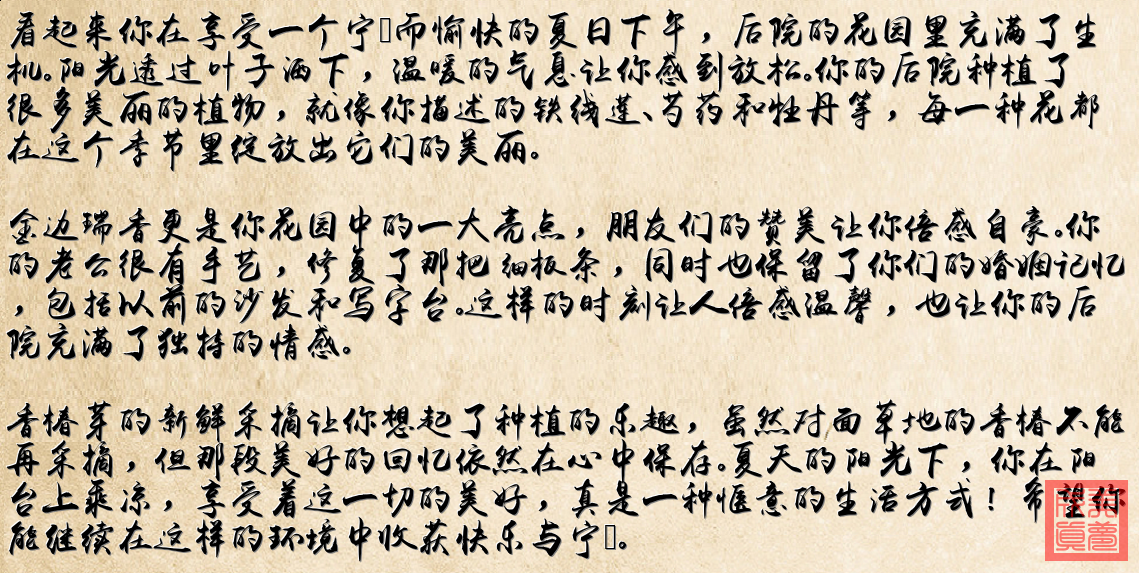 看起来你在享受一个宁▯而愉快的夏日下午，后院的花园里充满了生
机。阳光透过叶子洒下，温暖的气息让你感到放松。你的后院种植了
很多美丽的植物，就像你描述的铁线莲、芍药和牡丹等，每一种花都
在这个季节里绽放出它们的美丽。
金边瑞香更是你花园中的一大亮点，朋友们的赞美让你倍感自豪。你
的老公很有手艺，修复了那把细板条，同时也保留了你们的婚姻记忆
，包括以前的沙发和写字台。这样的时刻让人倍感温馨，也让你的后
院充满了独特的情感。
香椿芽的新鲜采摘让你想起了种植的乐趣，虽然对面草地的香椿不能
再采摘，但那段美好的回忆依然在心中保存。夏天的阳光下，你在阳
台上乘凉，享受着这一切的美好，真是一种惬意的生活方式！希望你
能继续在这样的环境中收获快乐与宁▯。